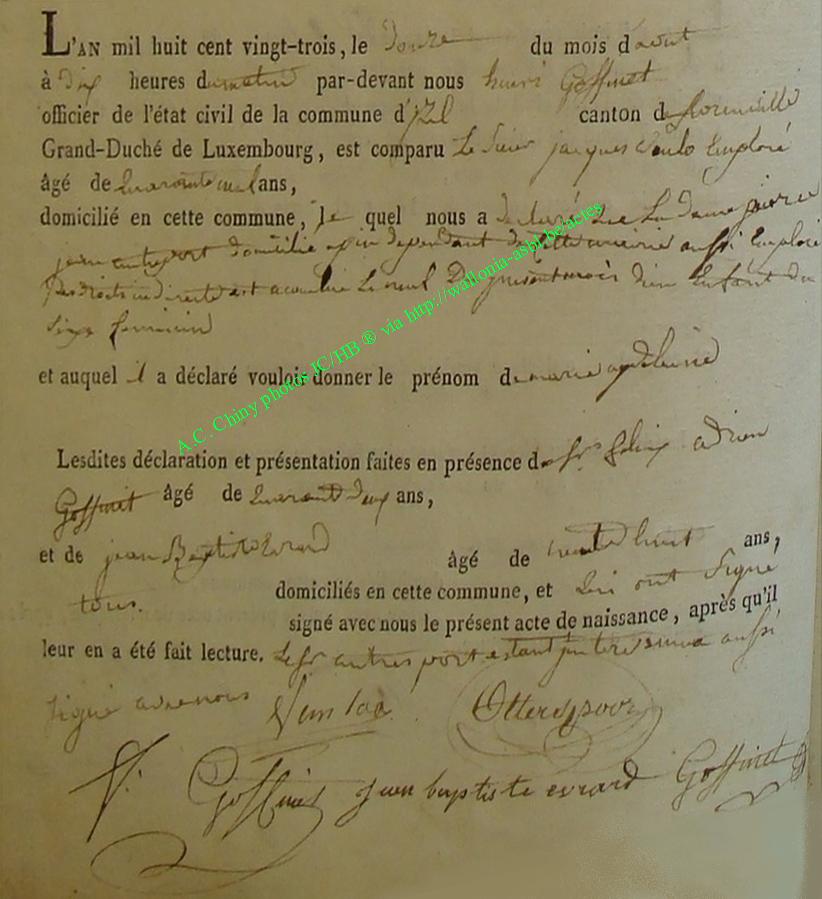 L'AN mil huit cent vingt-trois, le douze du mois d'aout
à dix heures du matin par-devant nous henri Goffinet
officier de l'état civil de la commune d'jzel canton de florenville
Grand-Duché de Luxembourg, est comparu Le Sieur jacques Employé
âgé de quarante neuf ans,
domicilié en cette commune, le quel nous a declaré que La dame
domicilié de cette mairie aussi Employé
Des droits indirects est acouchée Le neuf Du present mois d'un Enfant du
sixe feminin
et auquel il a déclaré vouloir donner le prénom de marie
Lesdites déclaration et présentation faites en présence de Sr felix adrien
Goffinet âgé de quarante deux ans,
et de jean Baptiste Evrard âgé de trente huit ans,
domiciliés en cette commune, et qui ont signé
tous.
signé avec nous le présent acte de naissance, après qu'il
leur en a été fait lecture. Le Sr estant intervenu aussi
signé avec nous
Otterspoor
f: Goffinet jean baptiste evrard Goffinet
A.C. Chiny photos IC/HB ® via http://wallonia-asbl.be/actes